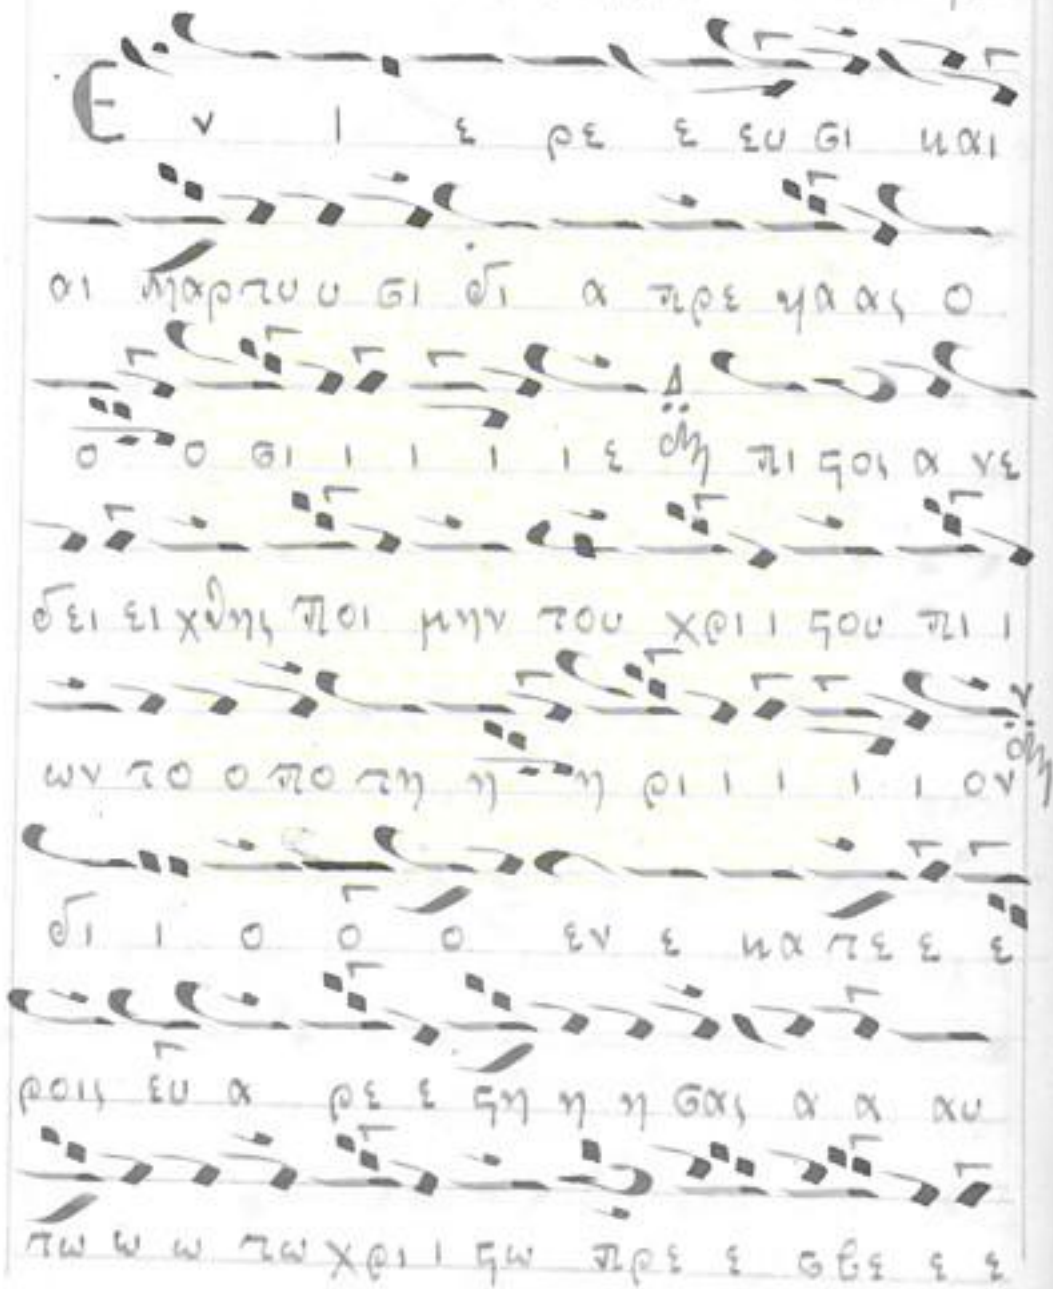 Ε ν ι ε ρε ε ευ σι και
αι μαρτυ υ σι δι α πρε ψα ας ο
ο ο σι ι ι ι ι ε πι ϛος α νε
δει ει χθης ποι μην του χρι ι ϛου πι ι
ων το ο πο τη η η ρι ι ι ι ι ον
δι ι ο ο ο εν ε κα τε ε ε
ροις ευ α ρε ε ϛη η η σας α α αυ
τω ω ω τω χρι ι ϛω πρε ε σβε ε ε